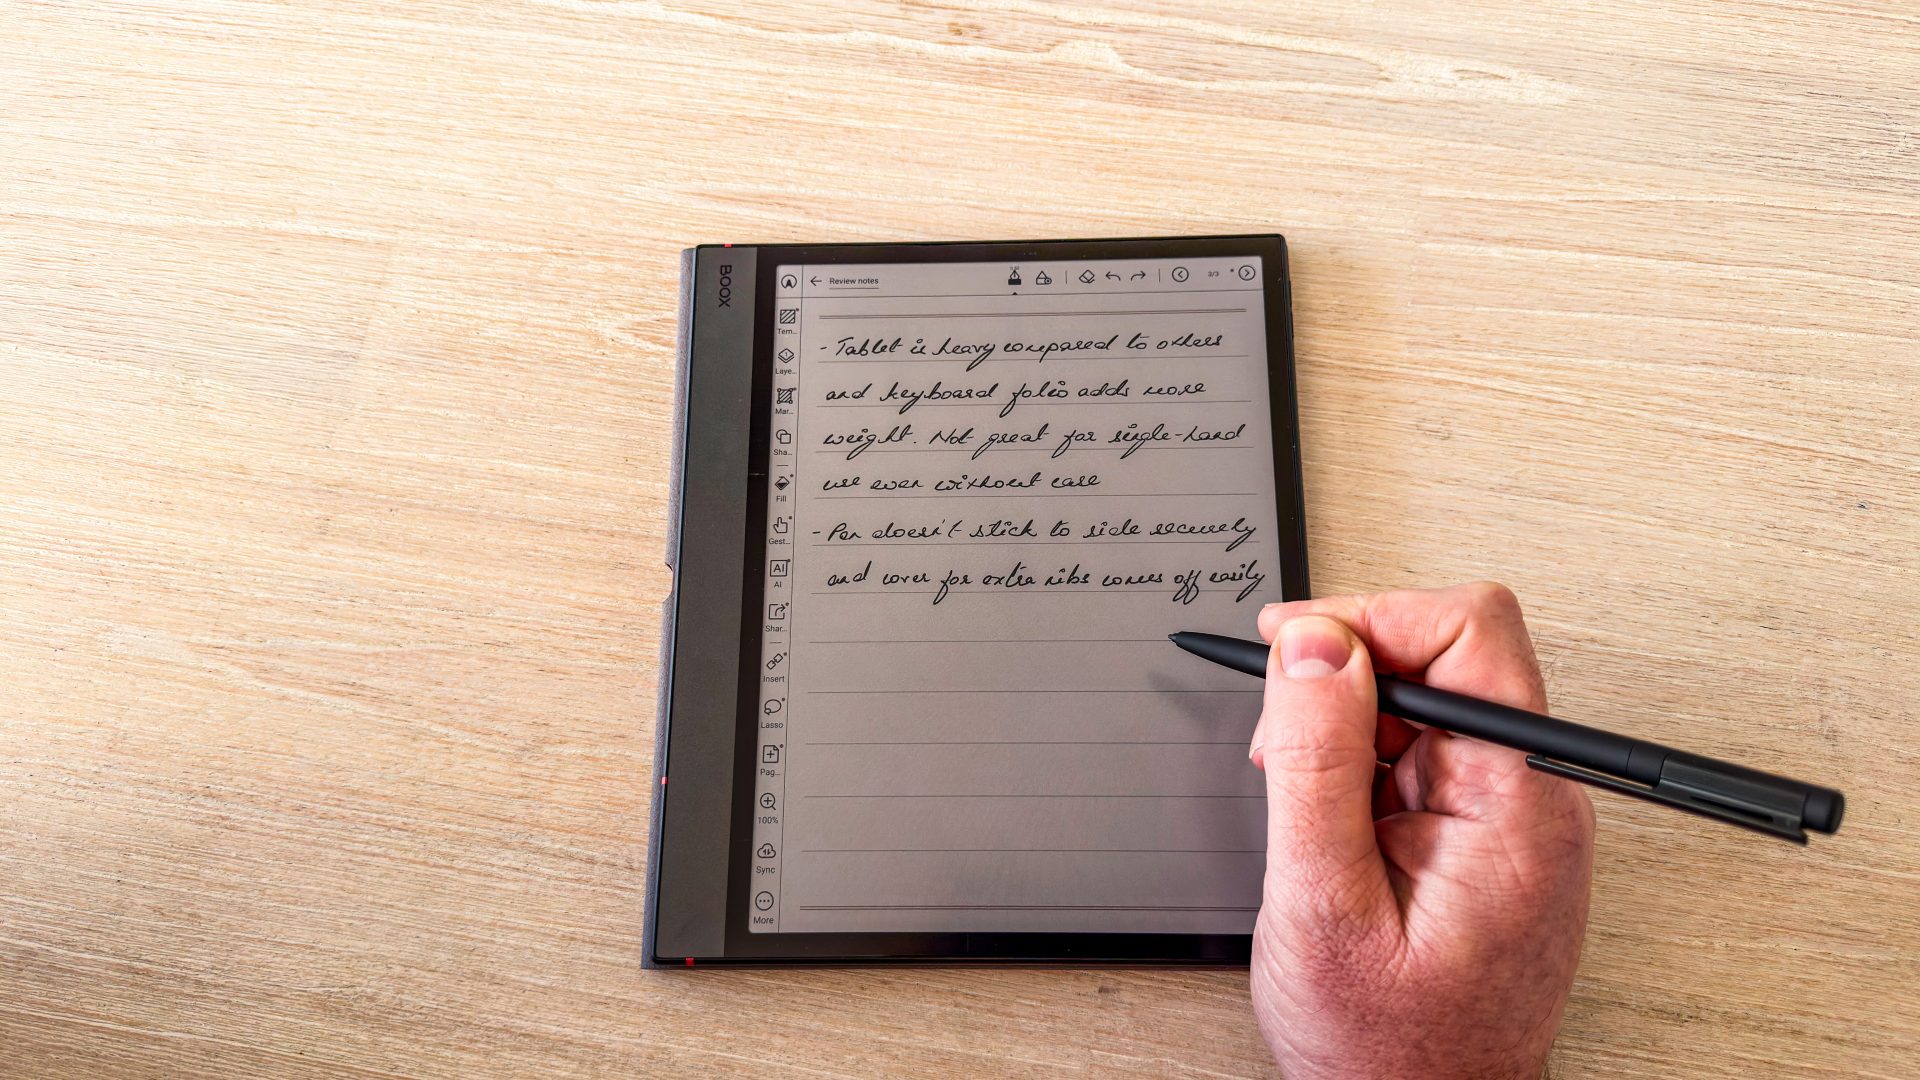 BOOX
Review notes
3/3
Tem...
Laye...
Mar...
Sha...
Fill
Gest...
AI
AI
Shar...
Insert
Lasso
Pag...
100%
Sync
More
- Tablet is heavy compared to others
and keyboard folio adds more
weight. Not great for single-hand
use even without case
- Pen doesn't stick to side securely
and cover for extra nibs comes off easily